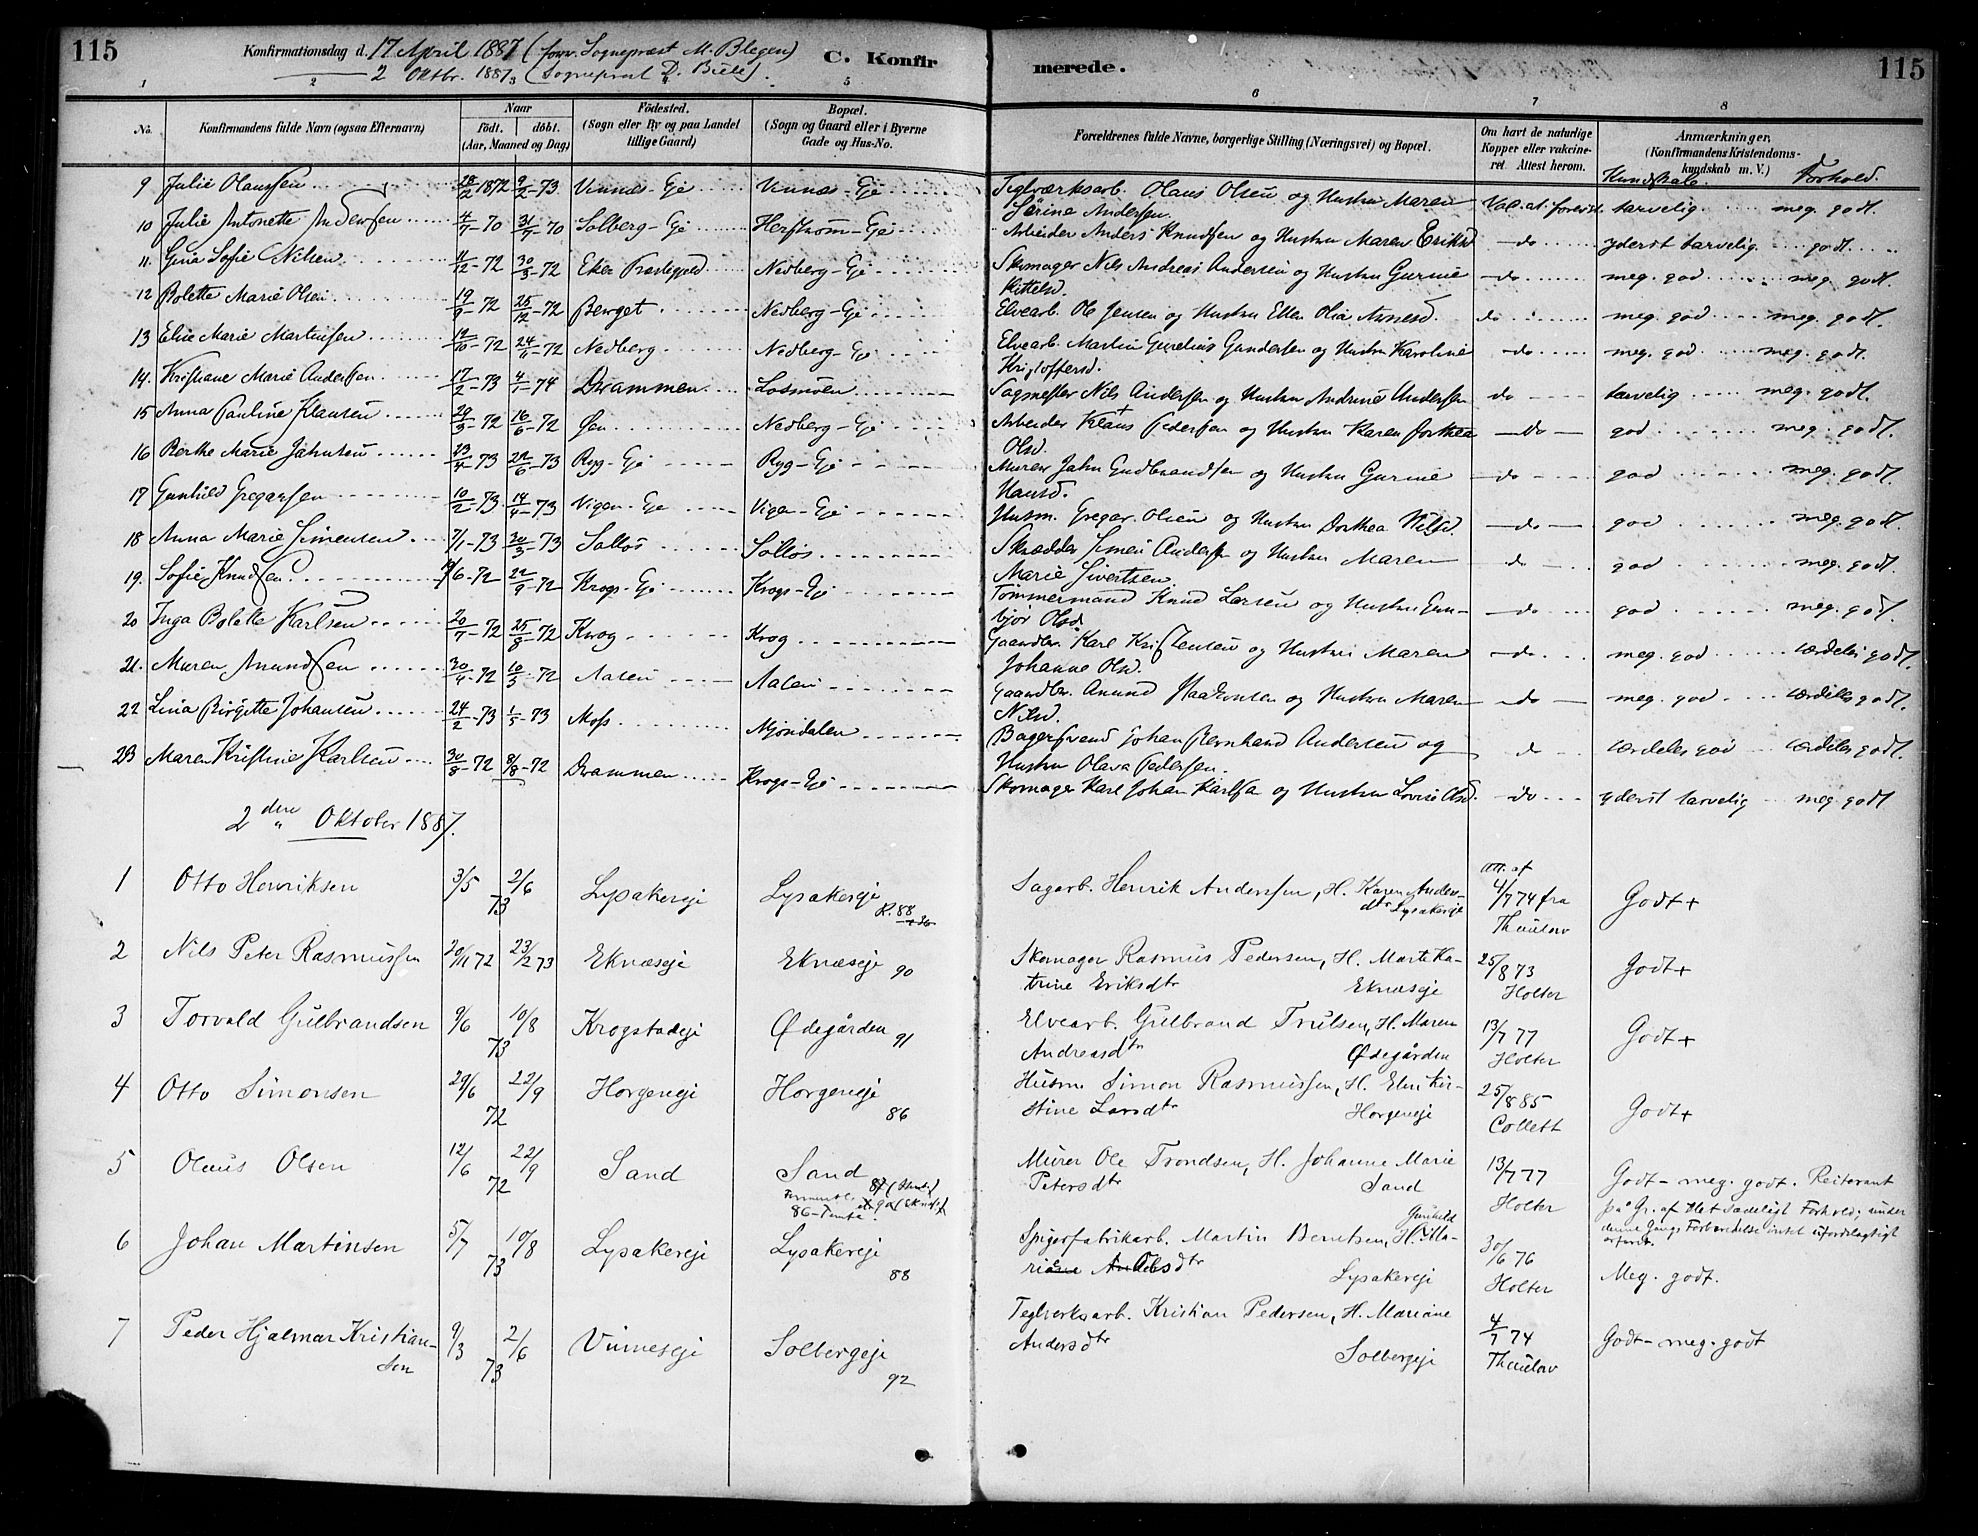 115
Konfirmationsdag d. 17 April 1887 (forr. Sognepræst M. Blegen)
2 Oktbr. 1887 (Sogneprest D.
C. Konfir
merede.
115
1 2 3 5 6 7 8
No.
Konfirmandens fulde Navn (ogsaa Efternavn)
Naar
født. | døbt.
(Aar, Maaned og Dag)
Fødested.
(Sogn eller By og paa Landet
tillige Gaard)
Bopæl.
(Sogn og Gaard eller i Byerne
Gade og Hus-No.
Forældrenes fulde Navne, borgerlige Stilling (Næringsvei) og Bopæl.
Om havt de naturlige
Kopper eller vakcine-
ret. Attest herom.
Anmærkninger,
(Konfirmandens Kristendoms-
kundskab m. V.)
Kundskab. Forhold.
9 Julie Olaussen 28/12 1872 9/2-73 Vinnæs-Eje Vinnæs-Eje Teglværksarb. Olaus Olsen og Hustru Maren
Sørine Andersen. tarvelig meg. godt.
10 Julie Antonette Andersen 4/7-70 31/7-70 Solberg-Eje Arbeider Anders Knudsen og Hustru Maren Eriksd. do yderst tarvelig godt.
11. Gina Sofie Nilsen 4/12-72 Eker Nedberg-Eje Skomager Nils Andreas Andersen og Hustru Gurine
Kittelsd. do meg. god meg. godt.
12 Bolette Marie Olsen 19/9-72 25/12-72 Berget Nedberg-Eje Elvearb. Ole Jensen og Hustru Ellen Olia do meg. god meg. godt.
13 Elise Marie Martinsen 12/10-72 Nedberg Nedberg-Eje Elvearb. Martin Gundersen og Hustru Karoline
Kristoffersd. do meg. god meg. godt.
14. Kristiane Marie Andersen 17/2-73 4/1-74 Drammen Losmoen Sagmester Nils Andersen og Hustru Andrine Andersen do tarvelig meg. godt.
15 Anna Pauline Klausen 29/3-72 16/6-72 Øen Nedberg-Eje Arbeider Klaus Pedersen og Hustru Karen Dorthea
Olsd. do god meg. godt.
16 Berthe Marie Jahnsen 23/4-73 22/6-73 Ryg-Eje Ryg-Eje Murer Jahn Gudbrandsen og Hustru Gurine
Hansd. do god meg. godt.
17 Gunhild Gregarsen 10/2-73 14/4-73 Vigen-Eje Vigen-Eje Husm. Gregar Olsen og Hustru Dorthea Nilsd. do god meg. godt.
18 Anna Marie Simensen 7/1-73 30/3-73 Solløs Solløs Skrædder Simen Andersen og Hustru Maren
Marie Sivertsen. do god meg. godt.
19. Sofie Knudsen 22/9-72 Krogs-Eje Krogs-Eje Tømmermand Knud Larsen og Hustru Gun-
bjør Olsd. do god meg. godt.
20 Inga Bolette Karlsen 20/7-72 25/8-72 Krog Krog Gaardbr. Karl Kristensen og Hustru Maren
Johanne Olsd. do meg. god særdeles godt.
21. Maren Anundsen 10/3-72 Aasen Aasen Gaardbr. Anund Haakonsen og Hustru Maren
Nilsd. do meg. god særdeles godt.
22 Lina Birgitte Johansen 24/2-73 1/5-73 Moss Mjøndalen Bagersvend Johan Bernhard Andersen og
Hustru Olava Pedersen. do særdeles god særdeles godt.
23 Maren Kristine Karlsen 30/8-72 8/8-72 Drammen Krogs-Eje Skomager Karl Johan Karlsen og Hustru Lovise Olsd. do yderst tarvelig meg. godt
2den Oktober 1887.
1 Otto Henriksen 3/5 2/6 73 Lysakereje Lysakereje Sagarb. Henrik Anderssen, H. Karen Anders-
dtr Lysakereje att. af
4/7 74 fra
Thaulow Godt+
2 Nils Peter Rasmussen 20/11 72 23/2 73 Eknæseje Eknæseje 90 Skomager Rasmus Pedersen, H. Marte Ka-
trine Eriksdtr Eknæseje 25/8 73
Holter Godt+
3 Torvald Gulbrandsen 9/6 10/8 73 Krogstadeje Ødegården 91 Elvearb. Gulbrand Trulsen, H. Maren
Andreasdtr Ødegården 13/7 77
Holter Godt+
4 Otto Simonsen 29/6 22/9 72 Horgeneje Horgeneje 86 Husm. Simon Rasmussen, H. Elen Kir-
stine Larsdtr Horgeneje 25/8 85
Collett Godt+
5 Olaus Olsen 12/6 22/9 72 Sand Sand Murer Ole Trondsen, H. Johanne Marie
Petersdtr Sand 13/7 77
Holter Godt - meg. godt. Reiterant
på Gr. af slet sædeligt Forhold; under
denne Gangs Forberedelse intet ufordelagtigt
erfaret.
6 Johan Martinsen 5/7 10/8 73 Lysakereje Lysakereje 88 Spigerfabrikarb. Martin Berntsen, H. Gunhild Ma-
Lysakereje 30/6 76
Holter Meg. godt.
7 Peder Hjalmar Kristian-
sen 9/3 2/6 73 Vinneseje Solbergeje 92 Teglverksarb. Kristian Pedersen, H. Mariane
Andersdtr Solbergeje 4/7 74
Thaulow Godt - meg. godt